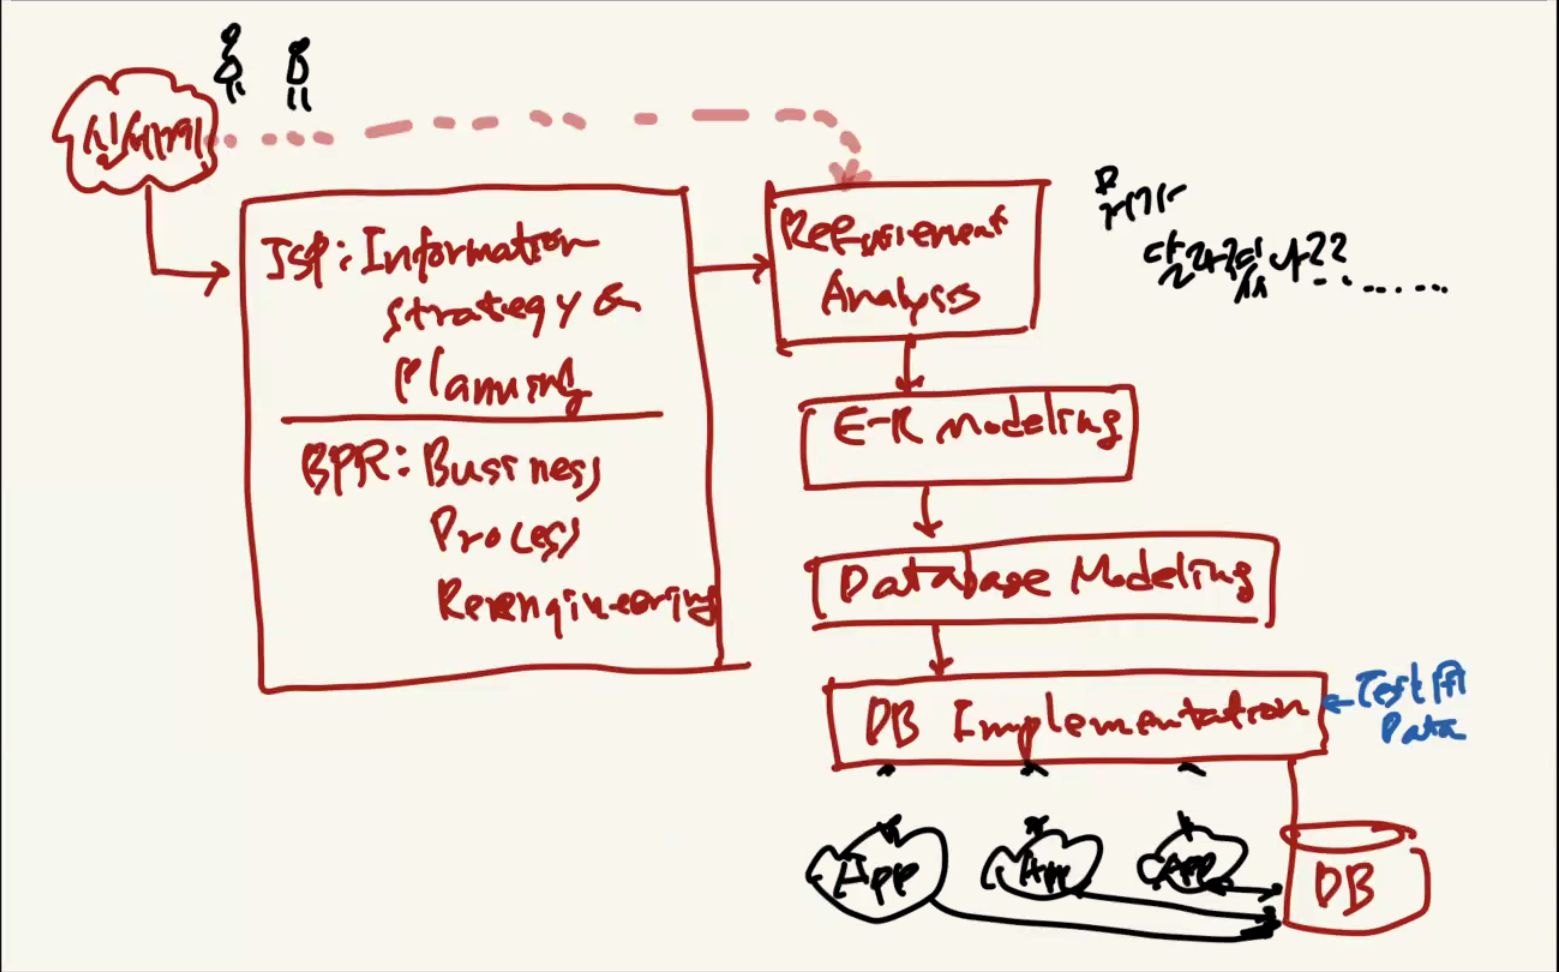 ISP: Information
strategy &
Planning
BPR: Business
Process
Reengineering
Requirement
Analysis
E-R Modeling
Database Modeling
DB Implementation
Test
Data
App
App
App
DB